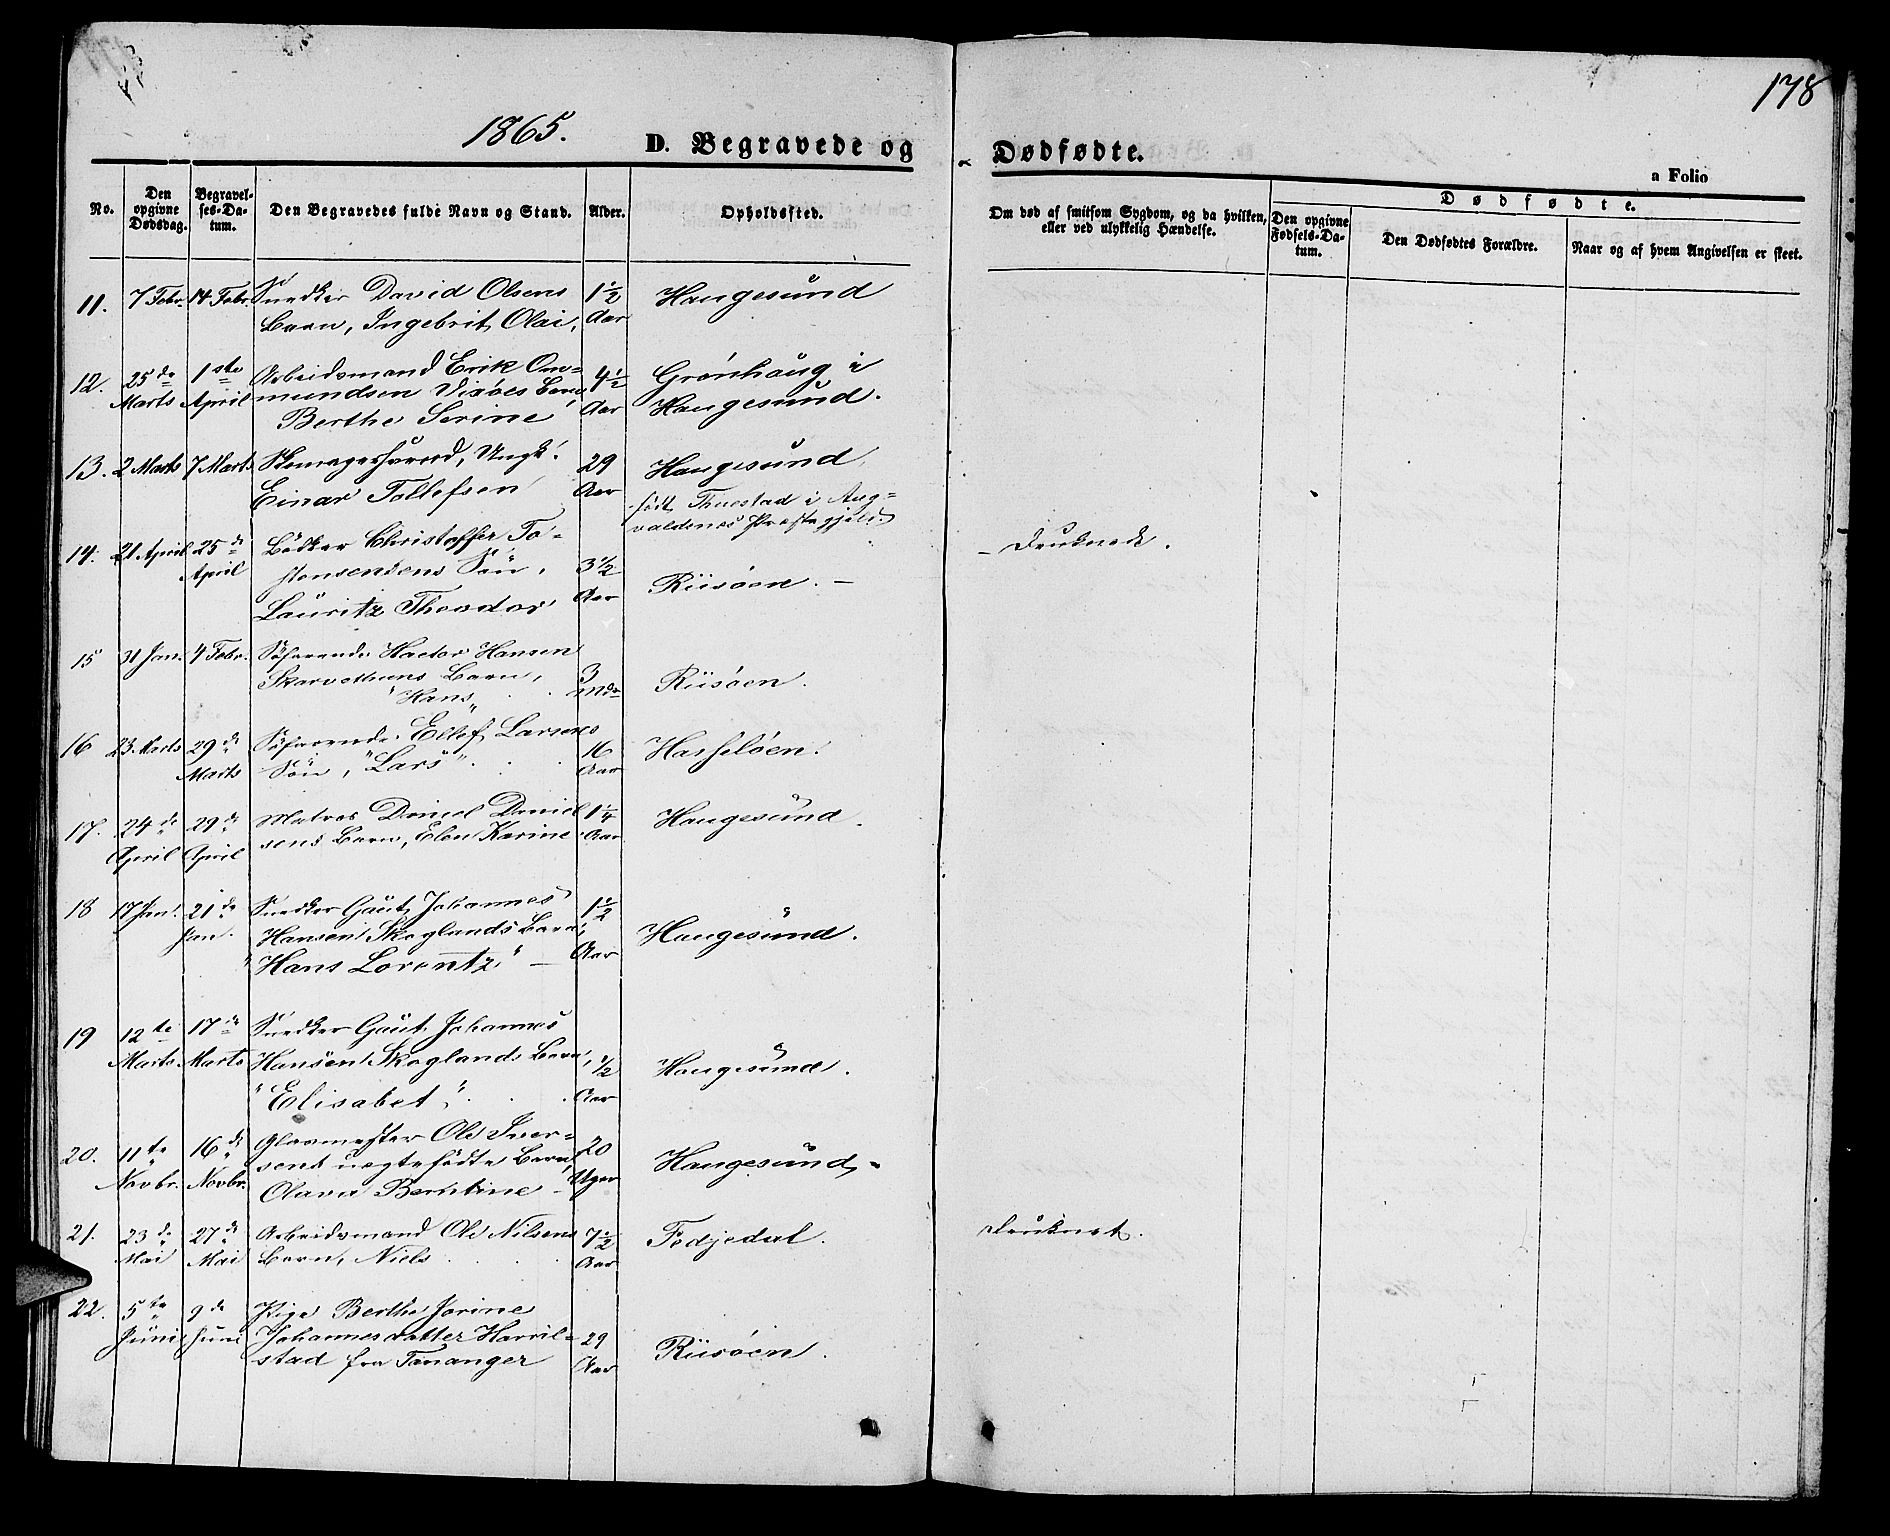 178
1865.
D. Begravede og Dødfødte.
a Folio
No.
Den opgivne Dødsdag.
Begravelses-Datum.
Den Begravedes fulde Navn og Stand.
Alder.
Opholdssted.
Om død af smitsom Sygdom, og da hvilken, eller ved ulykkelig Hændelse.
Dødfødte.
Den opgivne Fødsels-Datum.
Den Dødfødtes Forældre.
Naar og af hvem Angivelsen er skeet.
11. 7 Febr. 14 Febr. Snedker David Olsens 1 1/2 Haugesund
Barn, Ingebrit Olai, Aar
12. 25de 1ste Arbeidsmand Erik Om= 4 1/2 Grønhaug i
Marts April mundsen Barn, Aar Haugesund.
Berthe Serine
13. 2 Marts 7 Marts Skomagersvend, Ungk. 29 Haugesund,
Einar Tollefsen Aar født Thuestad i Aug=
valdsnes Præstegjeld.
14. 21 April 25de Bødker Christoffer To= - Druknede.
April stensens Søn, 3 1/2 Riisøen. -
Lauritz Theodor, Aar
15 31 Jan. 4 Febr. Søfarende Hansen 3 Riisøen.
Barn, Mdr
"Hans"
16 23. Marts 29de Søfarende Ellef Larsens 16 Hasseløen.
Marts Søn, "Lars" Aar
17. 24de 29de Matros Daniel Daniel 1 1/4 Haugesund.
April April sens Barn, Elen Karine. Aar
18 17 Jan. 21de Snedker Gaut Johannes 1 1/2 Haugesund.
Jan. Hansen Skoglands Barn, Aar
"Hans Lorentz" -
19 12te 17de Snedker Gaut Johannes
Marts Marts Hansen Skoglands Barn, 1/2 Haugesund.
"Elisabet" Aar
20. 11te 16de Glarmester Ole Iver= 20 Haugesund.
Novbr. Novbr. sens uægtefødte Barn, Uger
Olava Berntine -
21. 23de 27de Arbeidsmand Ole Nilsens 7 1/2 Fødjedal. Druknet.
Mai Mai Barn, Niels Aar
22. 5te 9de Pige Berthe Jorine
Juni Juni Johannesdatter 29 Riisøen.
stad fra Tananger Aar